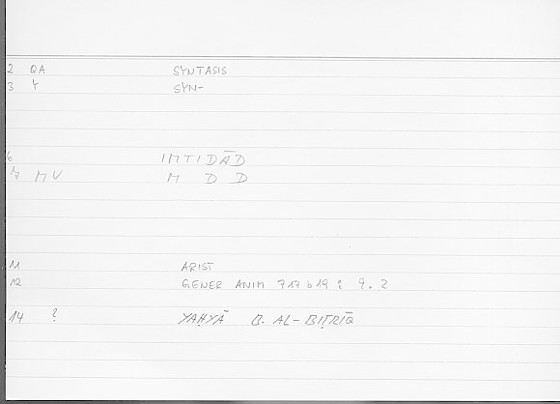 2 QA SYNTASIS
3 Y SYN-
6 IMTIDĀD
7 MV M D D
11 ARIST
12 GENER ANIM 717 b 19 : 9.2
14 ? YAḤYĀ B. AL-BIṬRĪQ